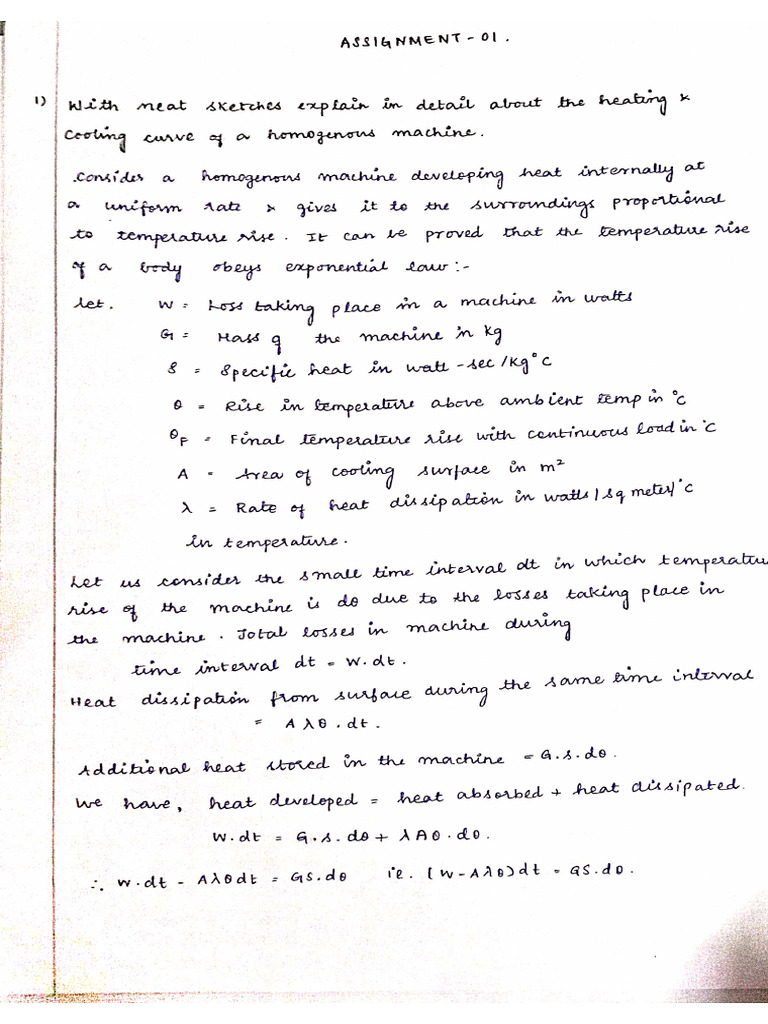 ASSIGNMENT-01.
1) With neat sketches explain in detail about the heating &
cooling curve of a homogenous machine.
Consider a homogenous machine developing heat internally at
a uniform rate & gives it to the surroundings proportional
to temperature rise. It can be proved that the temperature rise
of a body obeys exponential law:-
let. W = Loss taking place in a machine in watts
G = Mass of the machine in kg
S = Specific heat in watt-sec/kg°C
θ = Rise in temperature above ambient temp in °C
θF = Final temperature rise with continuous load in °C
A = Area of cooling surface in m²
λ = Rate of heat dissipation in watts/sq meter/°C
in temperature.
Let us consider the small time interval dt in which temperatu
rise of the machine is dθ due to the losses taking place in
the machine. Total losses in machine during
time interval dt = W.dt.
Heat dissipation from surface during the same time interval
= Aλθ.dt.
Additional heat stored in the machine = G.s.dθ.
We have, heat developed = heat absorbed + heat dissipated.
W.dt = G.s.dθ + λAθ.dθ.
∴ W.dt - Aλθdt = GS.dθ i.e. (W-Aλθ)dt = GS.dθ.